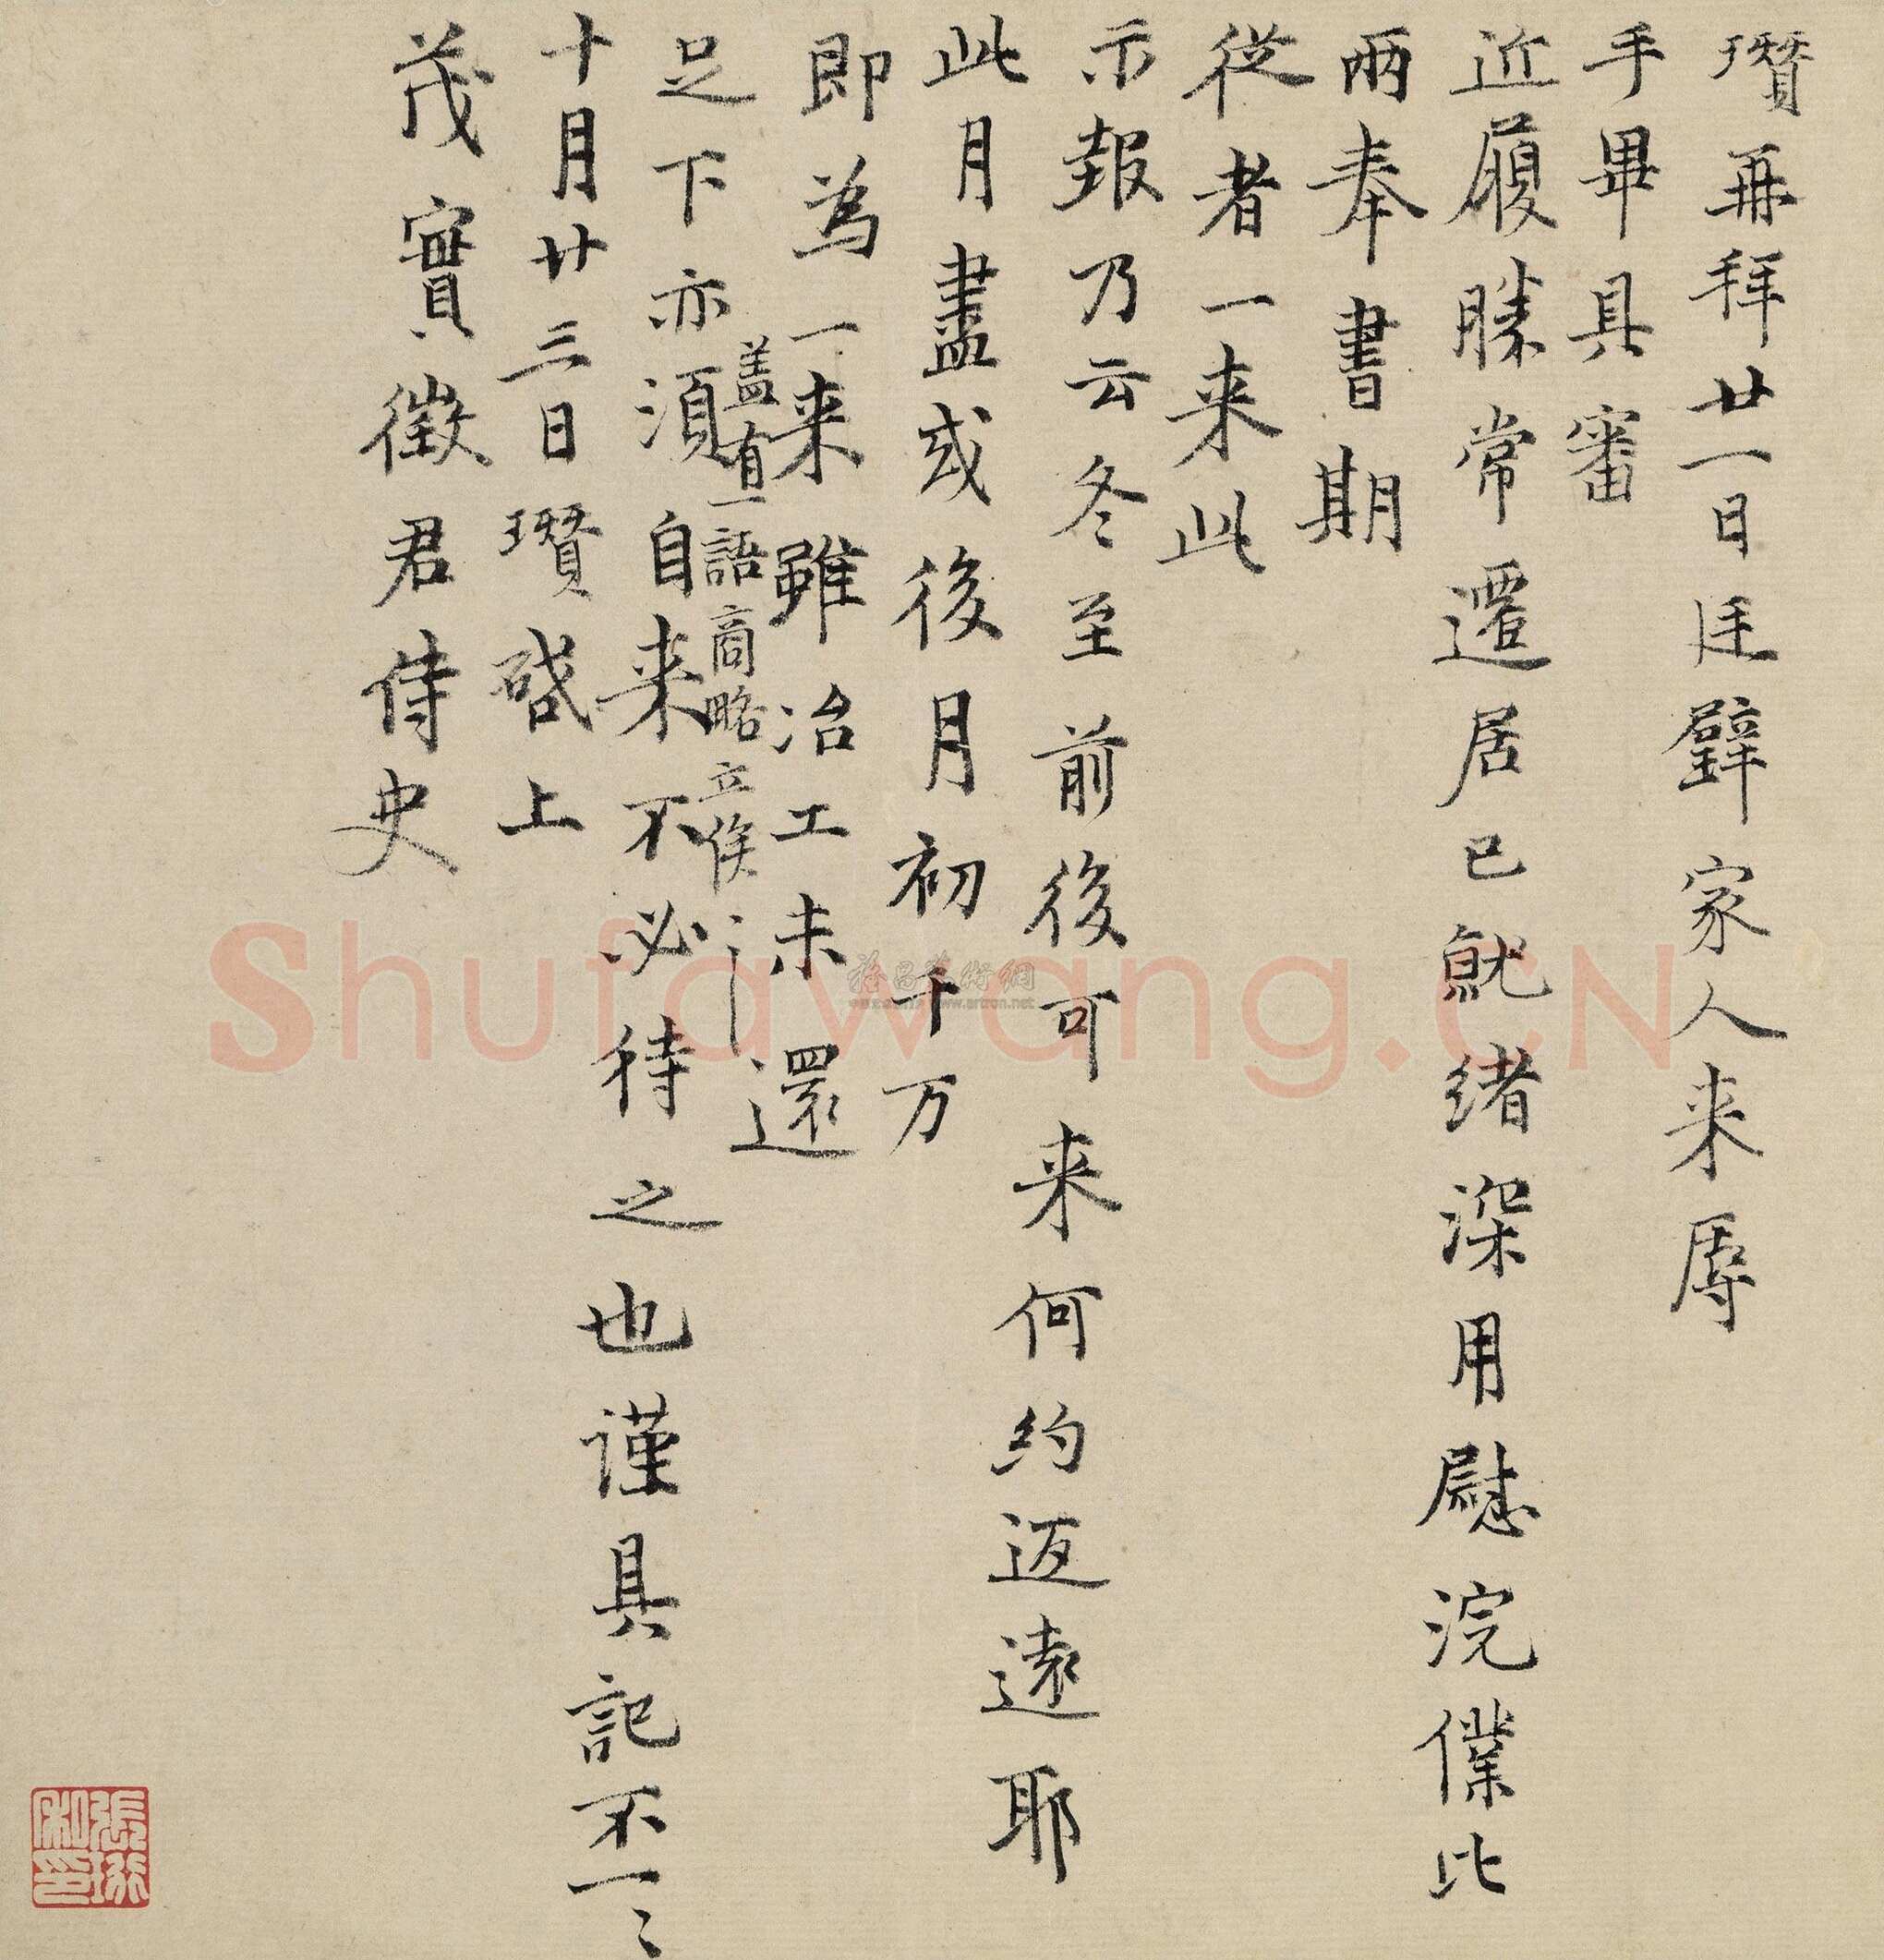 瓚再拜廿一日廷璧家人来辱
手畢具審
近履勝常遷居已就緒深用慰浣僕比
兩奉書期
從者一来此
示報乃云冬至前後可来何約返遠耶
此月盡或後月初千万
即為一来雖冶工未還
蓋有一語商略立俟
足下亦須自来不必待之也謹具記不一〻
十月廿三日瓚啓上
茂實徵君侍史
Shufawang.CN
www.artron.net